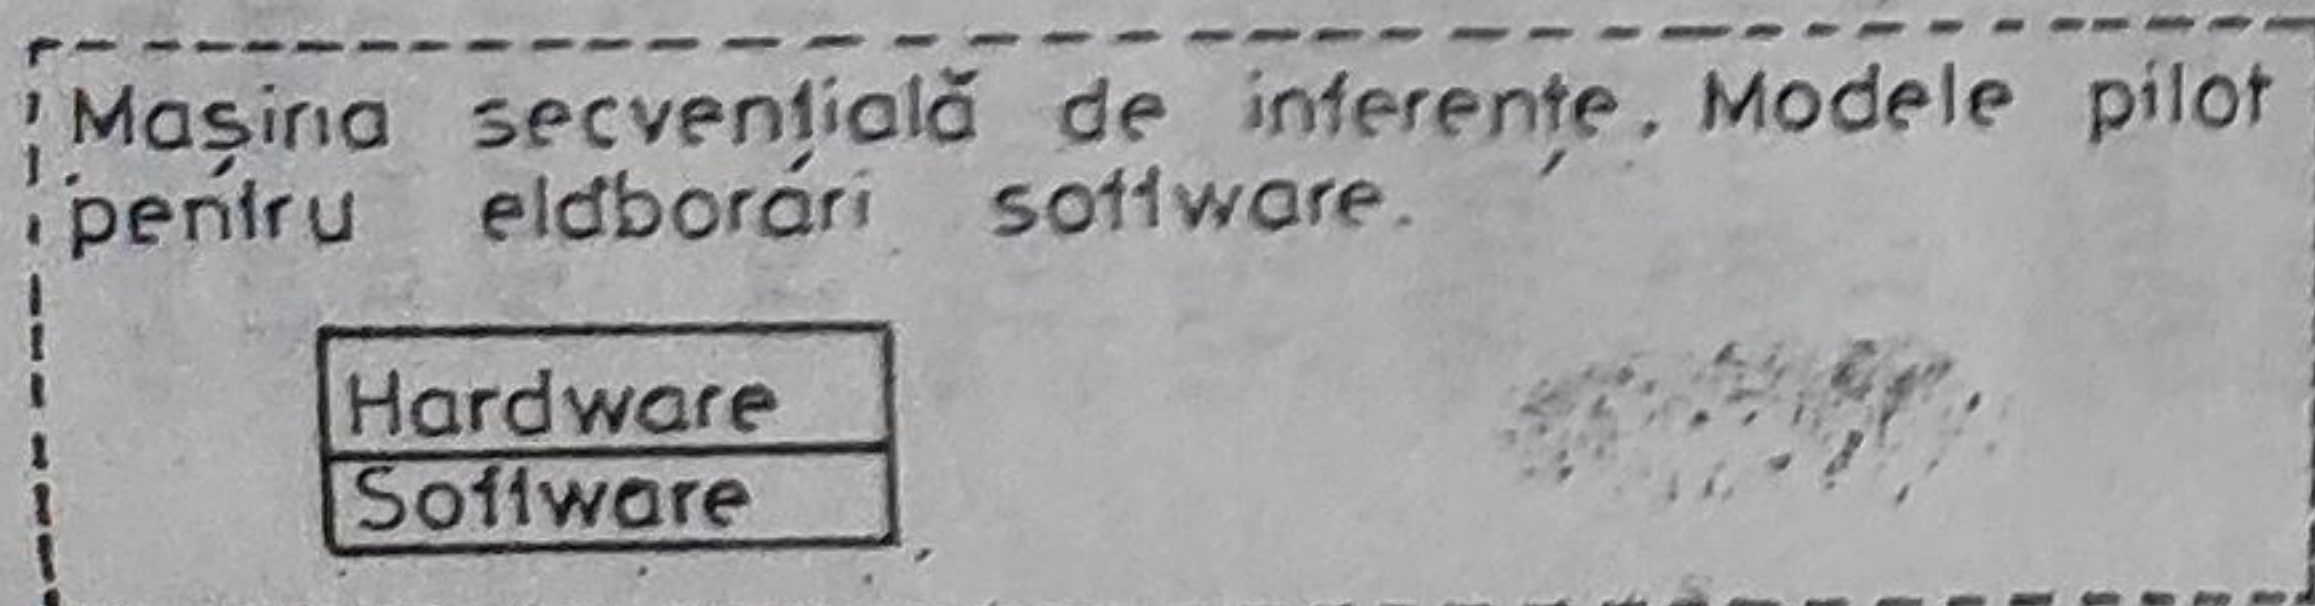 Mașina secvențială de inferențe. Modele pilot
pentru elaborări software.
Hardware
Software